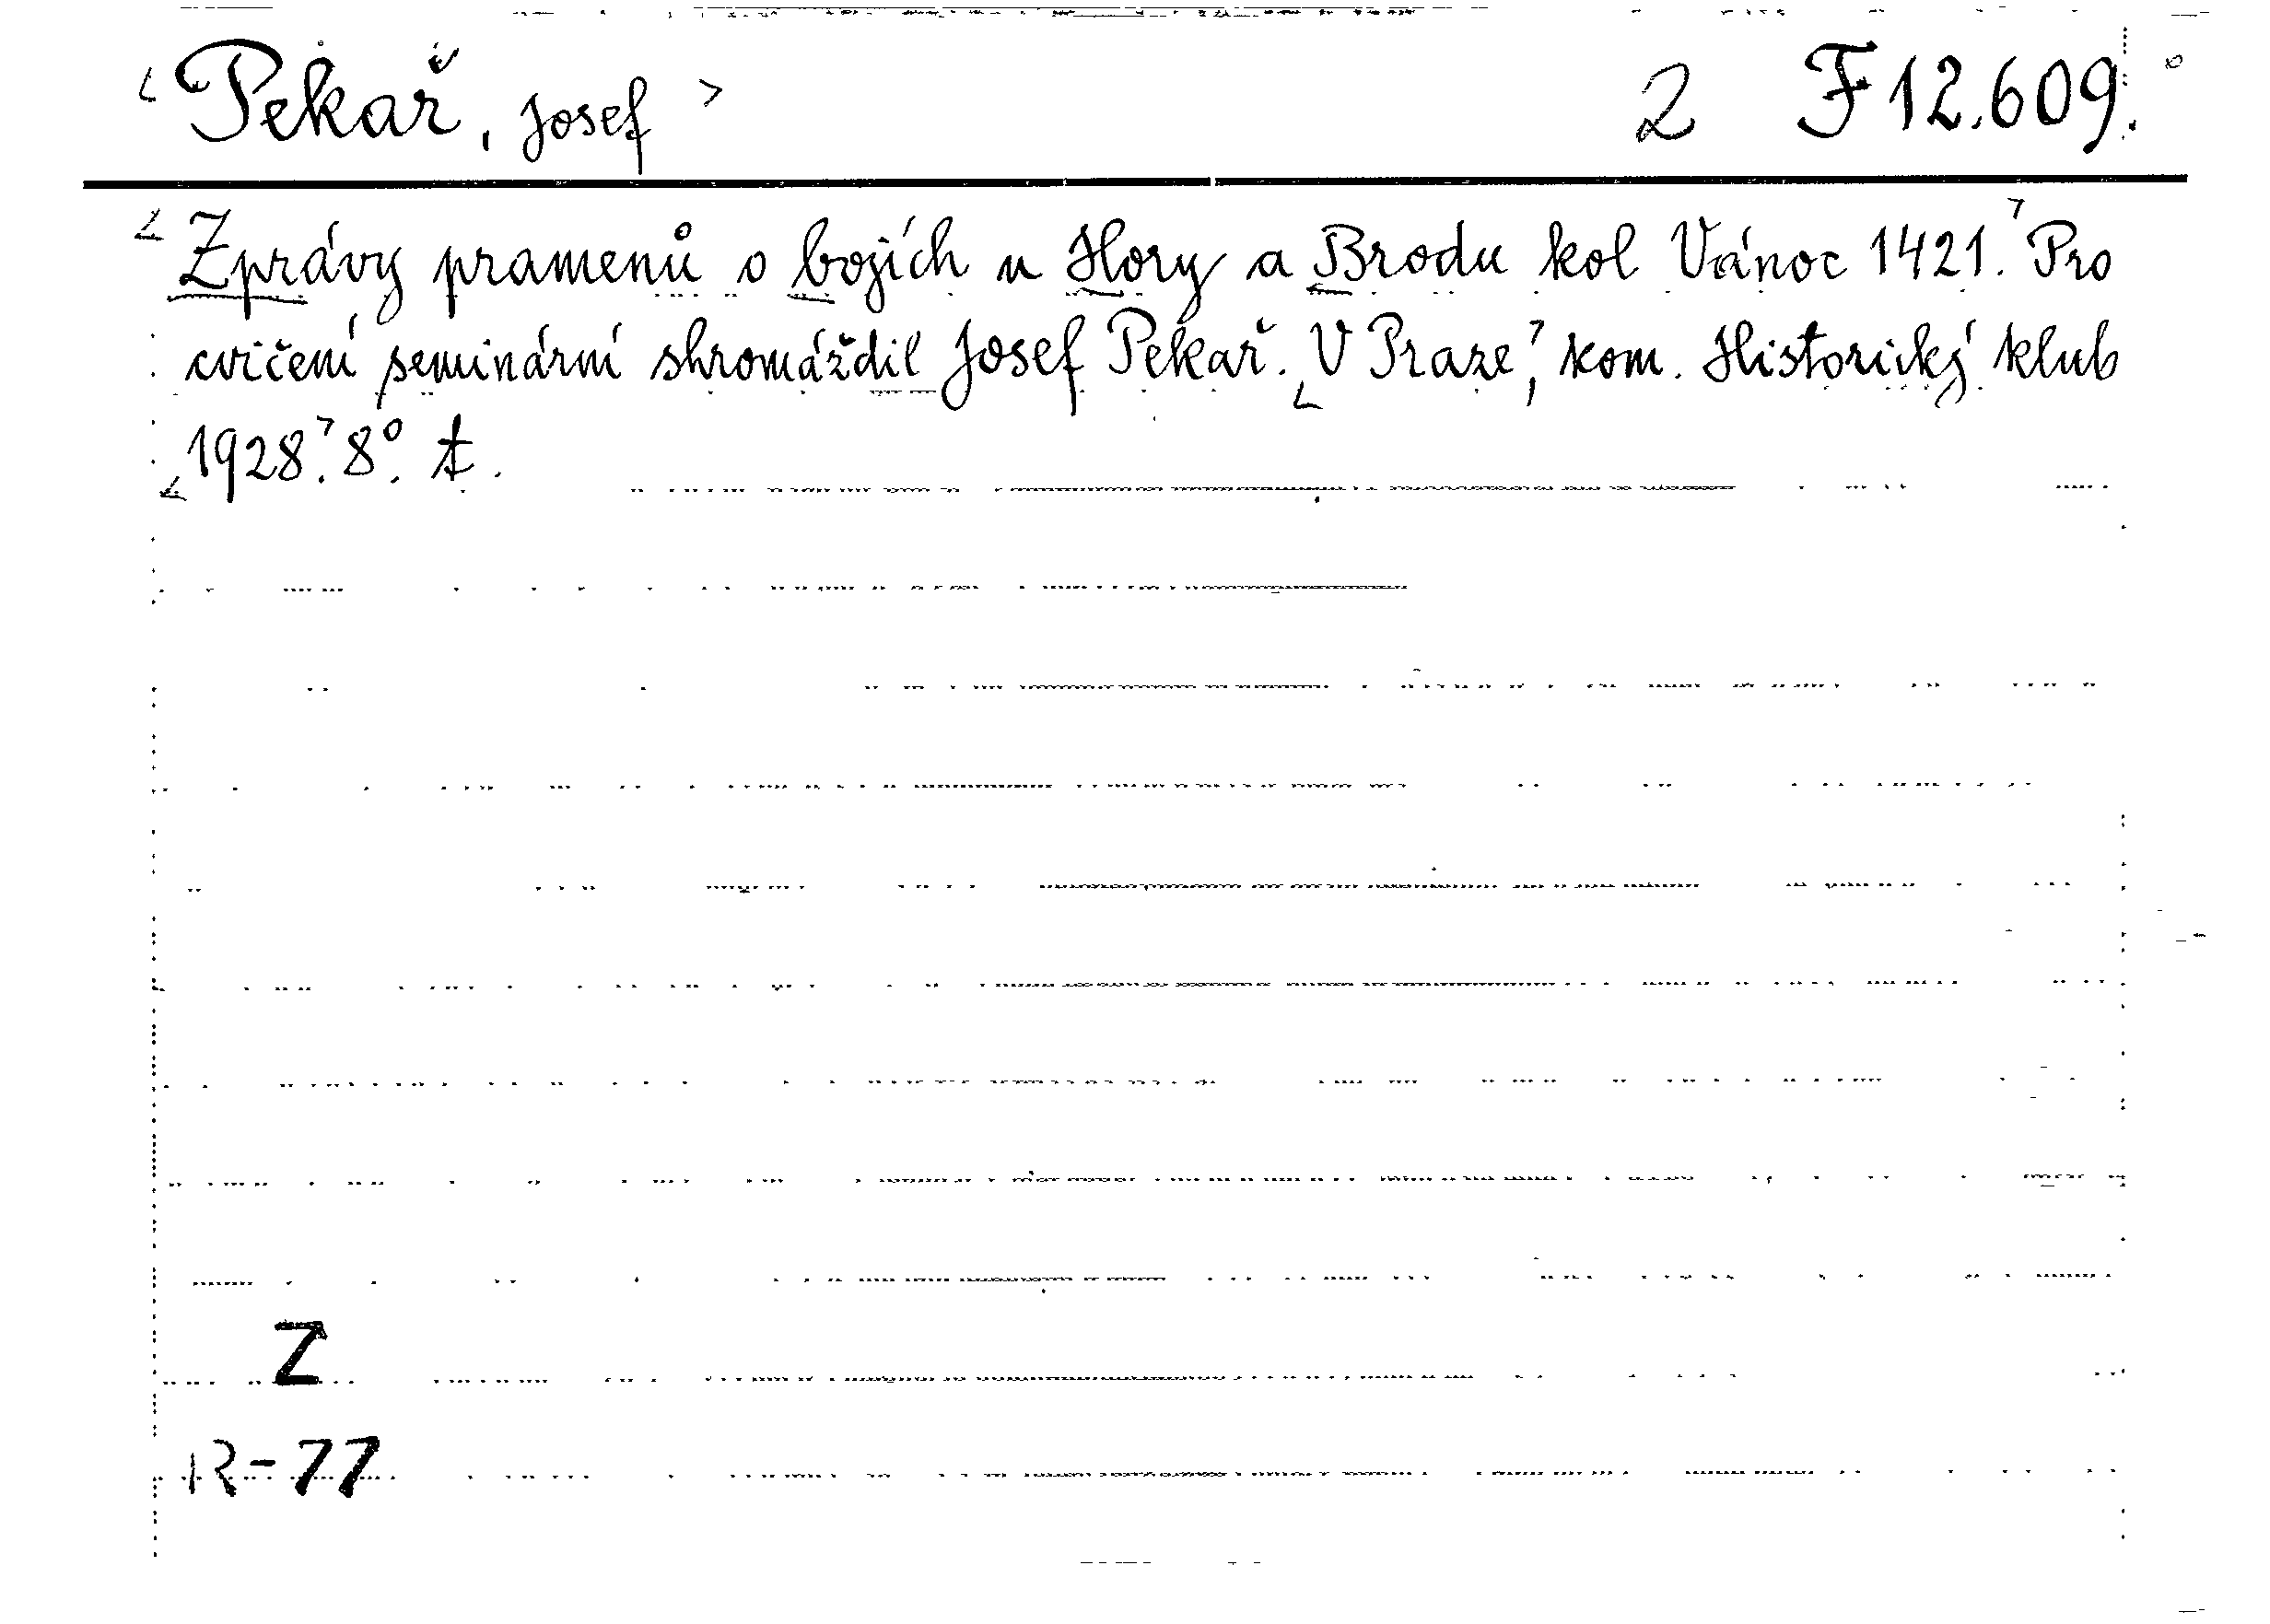 <Pekař, Josef> 2 F 12.609.
<Zprávy pramenů o bojích u Hory a Brodu kol Vánoc 1421.> Pro
cvičení seminární shromáždil Josef Pekař. <V Praze>, kom. Historický klub
<1928.> 8°.
Z
R-77